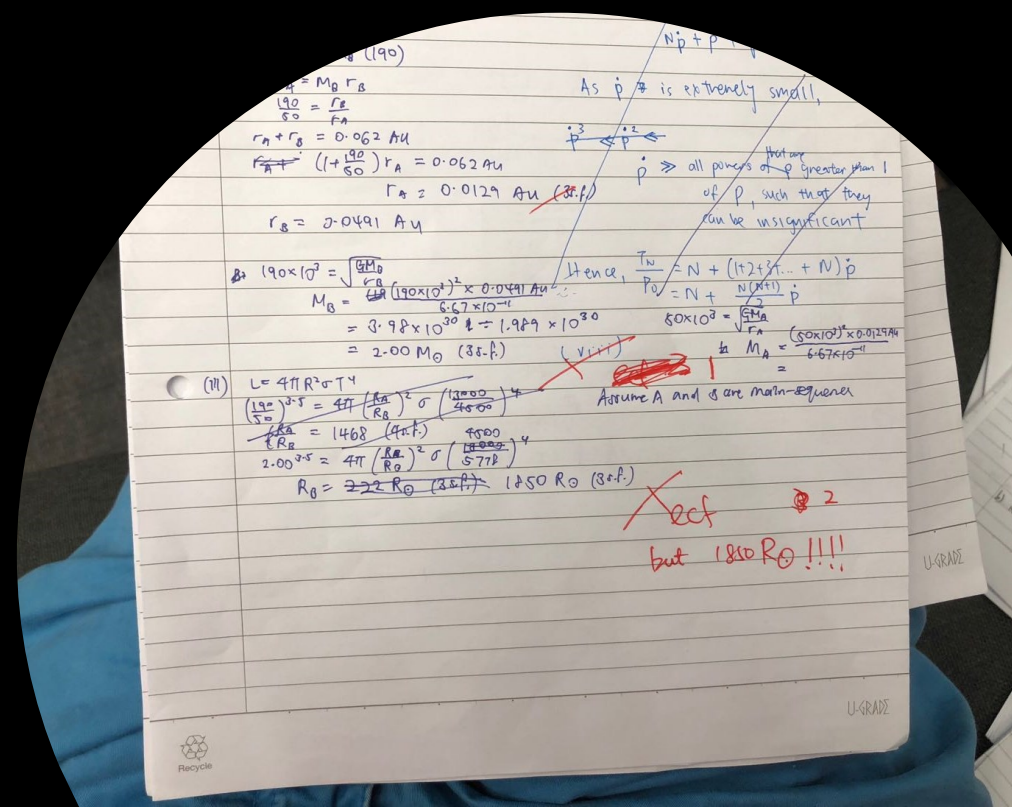 (190)
= M_B r_B
190/50 = r_B/r_A
r_A + r_B = 0.062 AU
(1+190/50) r_A = 0.062 AU
r_A = 0.0129 AU (3s.f.)
r_B = 0.0491 AU
190×10³ = √(GM_B/r_B)
M_B = (190×10³)² × 0.0491 AU / 6.67×10⁻¹¹
= 3.98×10³⁰ ÷ 1.989 ×10³⁰
= 2.00 M☉ (3s.f.)
(III) L = 4πR²σT⁴
(190/50)^3.5 = 4π (R_A/R_B)² σ (13000/4500)⁴
R_A/R_B = 1468 (4s.f.)
2.00^3.5 = 4π (R_B/R☉)² σ (4500/5778)⁴
R_B = 222 R☉ (3s.f.) 1850 R☉ (3s.f.)
Nṗ + p +
As ṗ is extremely small,
ṗ³ ≪ ṗ² ≪
ṗ ≫ all powers of p that are greater than 1
of p, such that they
can be insignificant
Hence, T_N/P_0 = N + (1+2+3+... + N)ṗ
= N + N(N+1)/2 ṗ
50×10³ = √(GM_A/r_A)
M_A = (50×10³)² × 0.0129AU / 6.67×10⁻¹¹
=
(viii)
1
Assume A and B are main-sequence
ecf 2
but 1850 R☉ !!!!
U-GRADE
U-GRADE
Recycle